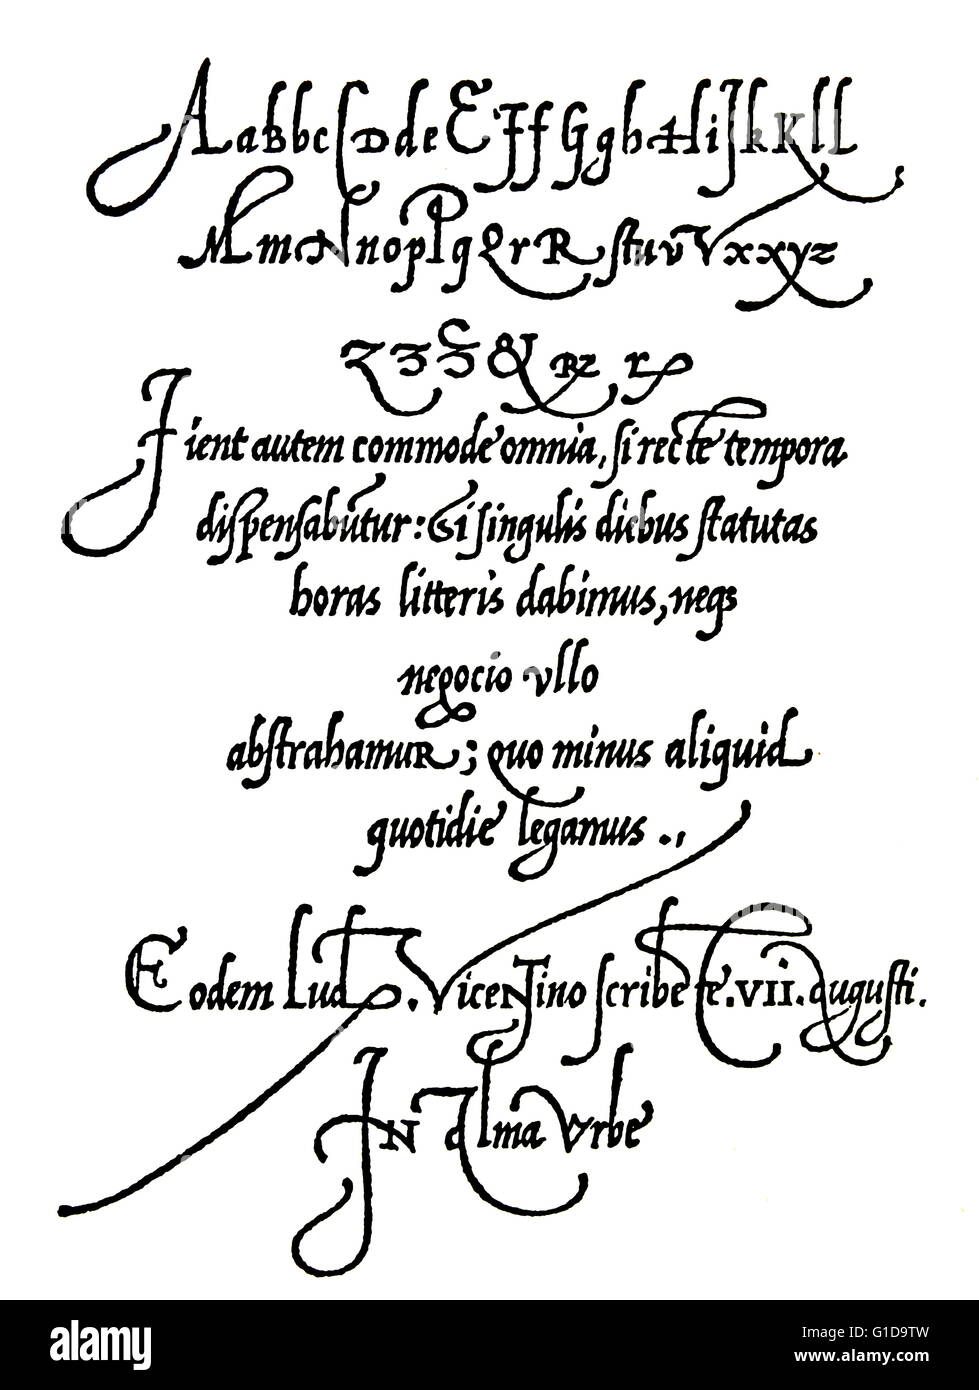 A a B b c C D d e E F f G g h H i J k K l l
M m N n o p P q Q r R ſ t u v V x x y z
Z z Z & RZ
Fient autem commode omnia, ſi recte tempora
diſpenſabūtur: Et ſi ſingulis diebus ſtatutas
horas litteris dabimus, neqꝫ
negocio vllo
abſtrahamuR; quo minus aliquid
quotidie legamus .,
Eodem Lud. Vicentino ſcribente. VII. auguſti.
IN alma Vrbe
alamy
Image ID: G1D9TW
www.alamy.com